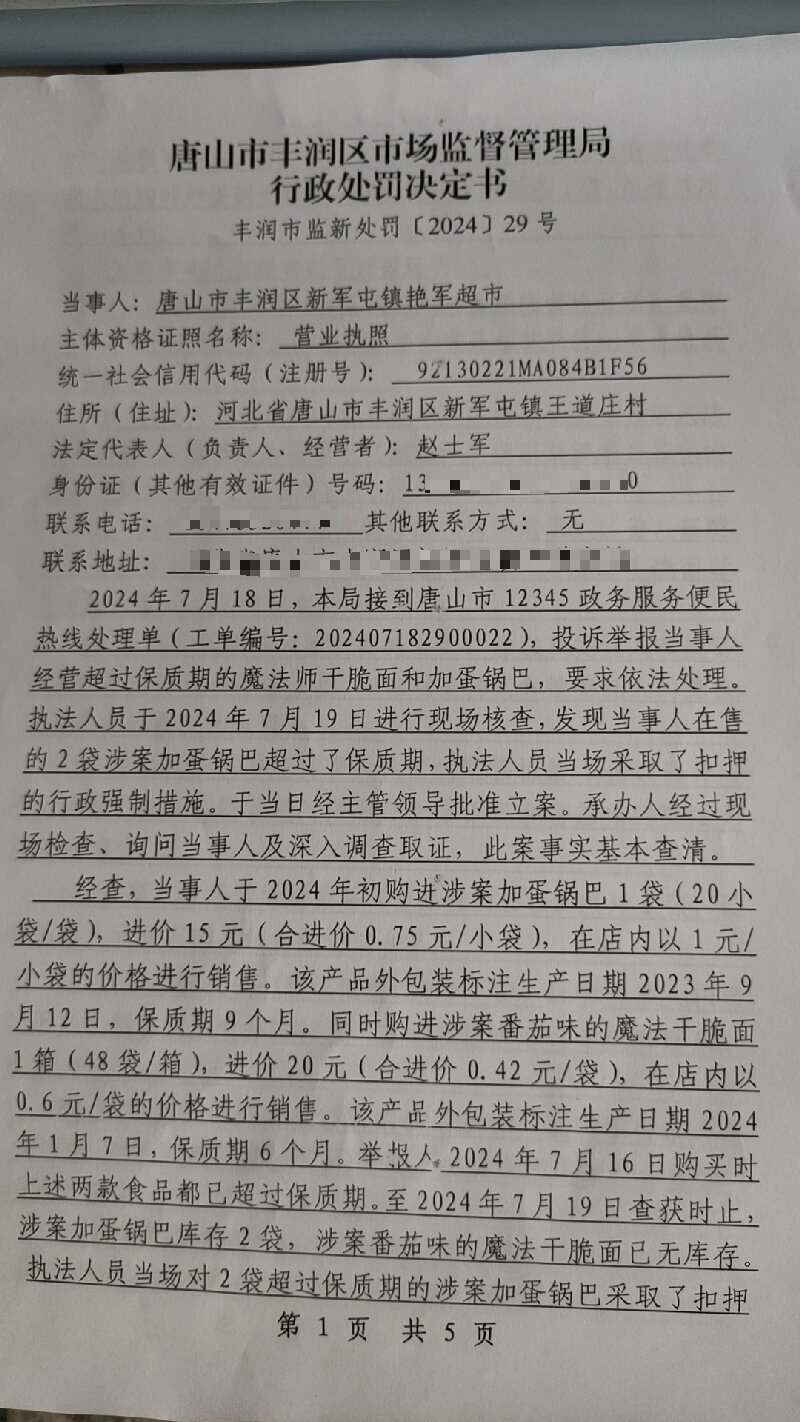 唐山市丰润区市场监督管理局
行政处罚决定书
丰润市监新处罚〔2024〕29号
当事人：唐山市丰润区新军屯镇艳军超市
主体资格证照名称：营业执照
统一社会信用代码（注册号）：92130221MA084B1F56
住所（住址）：河北省唐山市丰润区新军屯镇王道庄村
法定代表人（负责人、经营者）：赵士军
身份证（其他有效证件）号码：13 0
联系电话： 其他联系方式：无
联系地址：
2024年7月18日，本局接到唐山市12345政务服务便民
热线处理单（工单编号：202407182900022），投诉举报当事人
经营超过保质期的魔法师干脆面和加蛋锅巴，要求依法处理。
执法人员于2024年7月19日进行现场核查，发现当事人在售
的2袋涉案加蛋锅巴超过了保质期，执法人员当场采取了扣押
的行政强制措施。于当日经主管领导批准立案。承办人经过现
场检查、询问当事人及深入调查取证，此案事实基本查清。
经查，当事人于2024年初购进涉案加蛋锅巴1袋（20小
袋/袋），进价15元（合进价0.75元/小袋），在店内以1元/
小袋的价格进行销售。该产品外包装标注生产日期2023年9
月12日，保质期9个月。同时购进涉案番茄味的魔法干脆面
1箱（48袋/箱），进价20元（合进价0.42元/袋），在店内以
0.6元/袋的价格进行销售。该产品外包装标注生产日期2024
年1月7日，保质期6个月。举报人2024年7月16日购买时
上述两款食品都已超过保质期。至2024年7月19日查获时止，
涉案加蛋锅巴库存2袋，涉案番茄味的魔法干脆面已无库存。
执法人员当场对2袋超过保质期的涉案加蛋锅巴采取了扣押
第1页 共5页